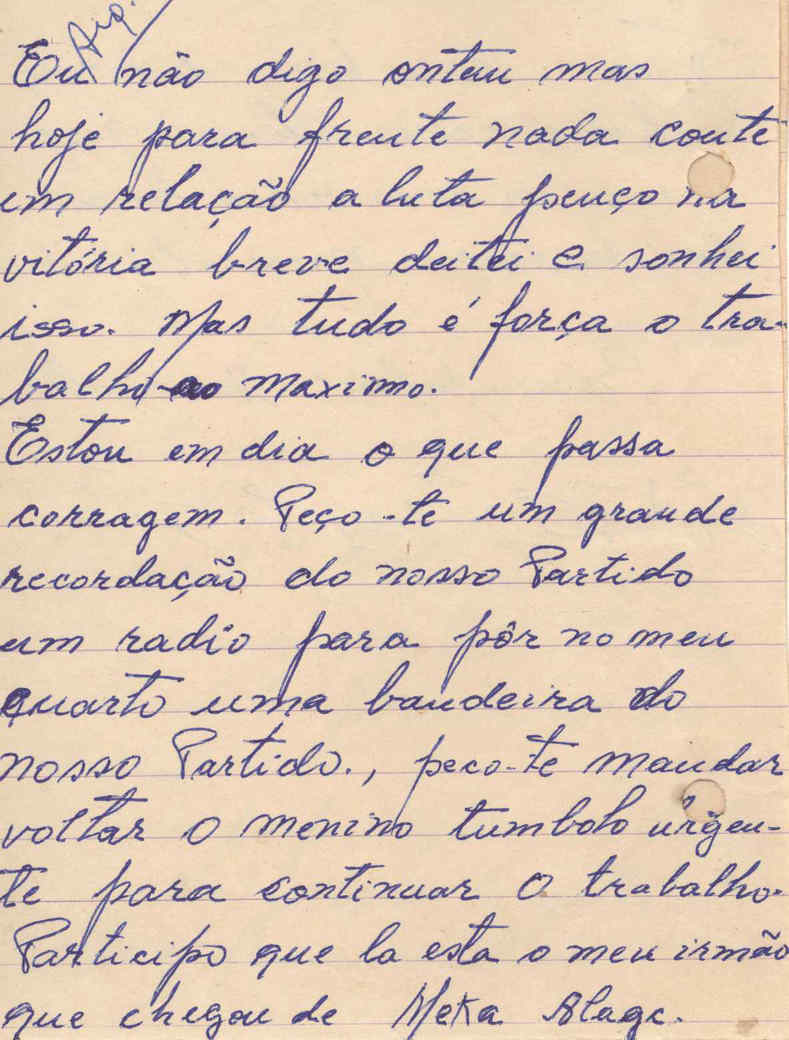 Arq.
Eu não digo ontau mas
hoje para frente nada conte
em relação a luta penço na
vitória breve deitei e sonhei
isso. Mas tudo é força o tra-
balho ao maximo.
Estou em dia o que passa
corragem. Peço-te um grande
recordação do nosso Partido
um radio para pôr no meu
quarto uma bandeira do
nosso Partido., peco-te mandar
voltar o menino tumbolo urgen-
te para continuar o trabalho.
Participo que la esta o meu irmão
que chegou de Meka Alage.